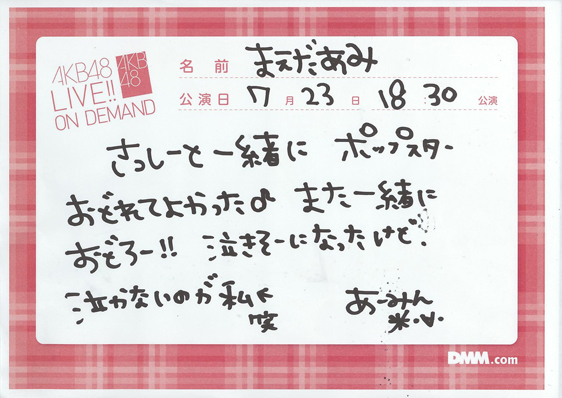 AKB48
LIVE!!
ON DEMAND
AKB
48
名前 まえだあみ
公演日 7月23日 18 30 公演
さっしーと一緒に ポップスター
おどれてよかった♪ また一緒に
おどろー!! 泣きそーになったけど.
泣かないのが私く
笑
あーみん
米・V・
DMM.com